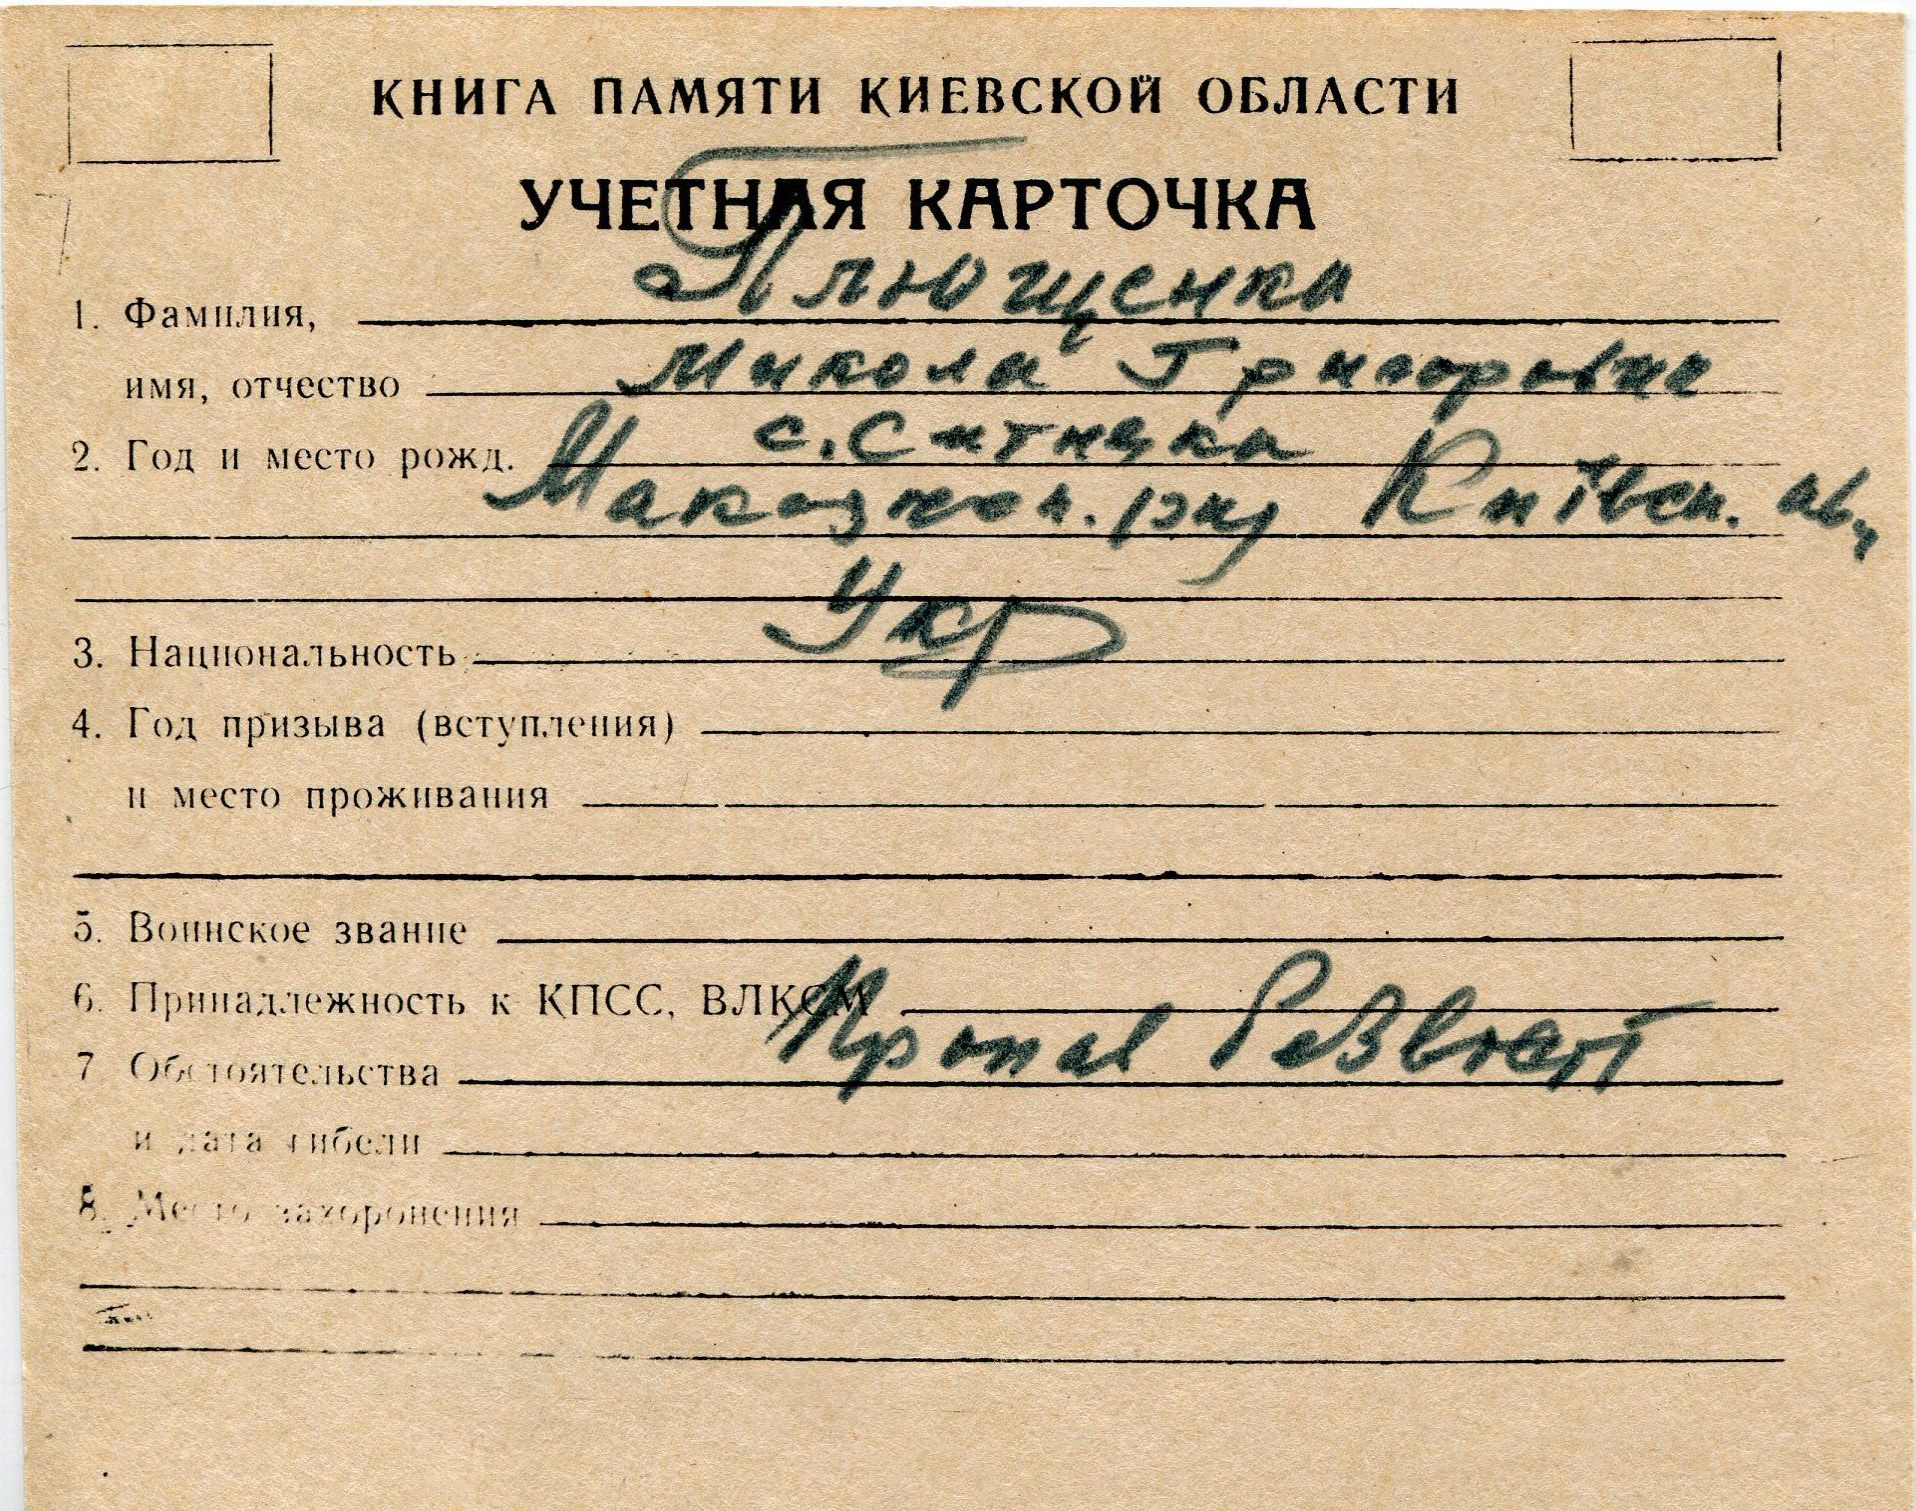 КНИГА ПАМЯТИ КИЕВСКОЙ ОБЛАСТИ
УЧЕТНАЯ КАРТОЧКА
1. Фамилия, Плющенко
имя, отчество Микола Григорович
2. Год и место рожд. с. Ситняки
Макарівськ. р-ну Київськ. обл.
3. Национальность Укр
4. Год призыва (вступления)
и место проживания
5. Воинское звание
6. Принадлежность к КПСС, ВЛКСМ
7. Обстоятельства Пропав безвісті
и дата гибели
8. Место захоронения